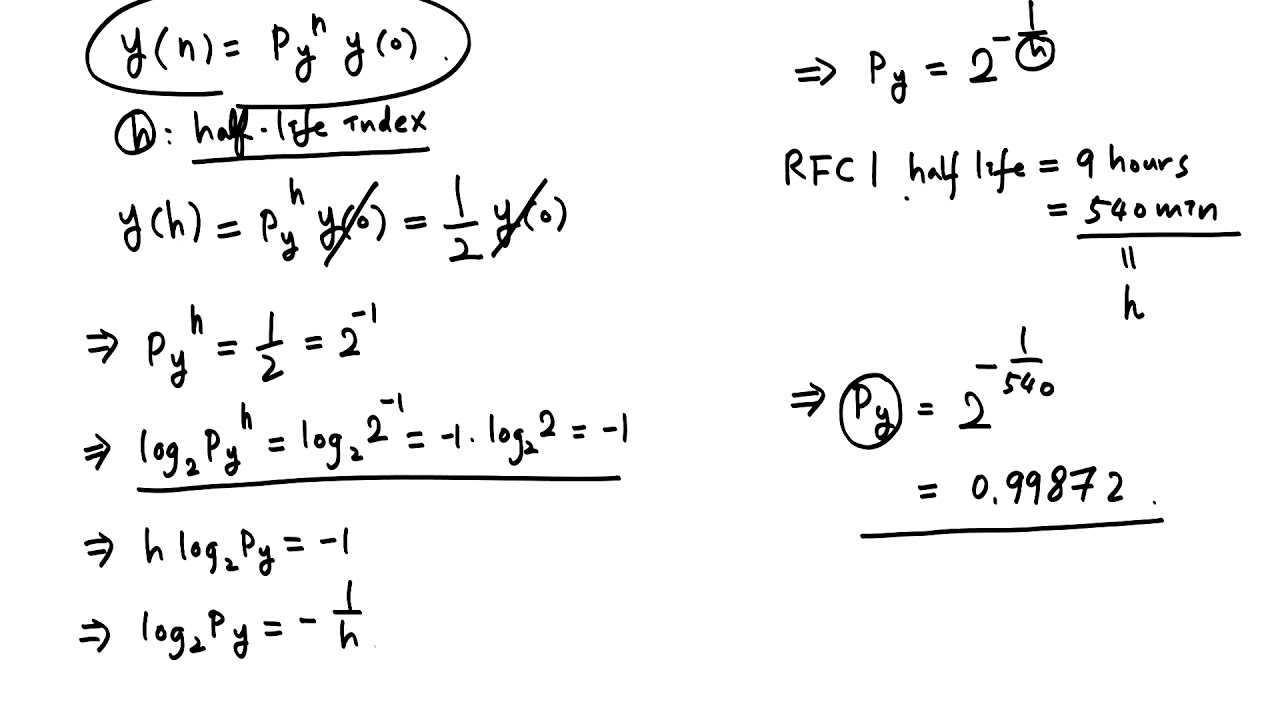 y(n) = Py^n y(0)
h: half-life index
y(h) = Py^h y(0) = 1/2 y(0)
⇒ Py^h = 1/2 = 2^-1
⇒ log₂ Py^h = log₂ 2^-1 = -1 · log₂ 2 = -1
⇒ h log₂ Py = -1
⇒ log₂ Py = - 1/h
⇒ Py = 2^(-1/h)
RFC1 half life = 9 hours
= 540 min
=
h
⇒ Py = 2^(-1/540)
= 0.99872